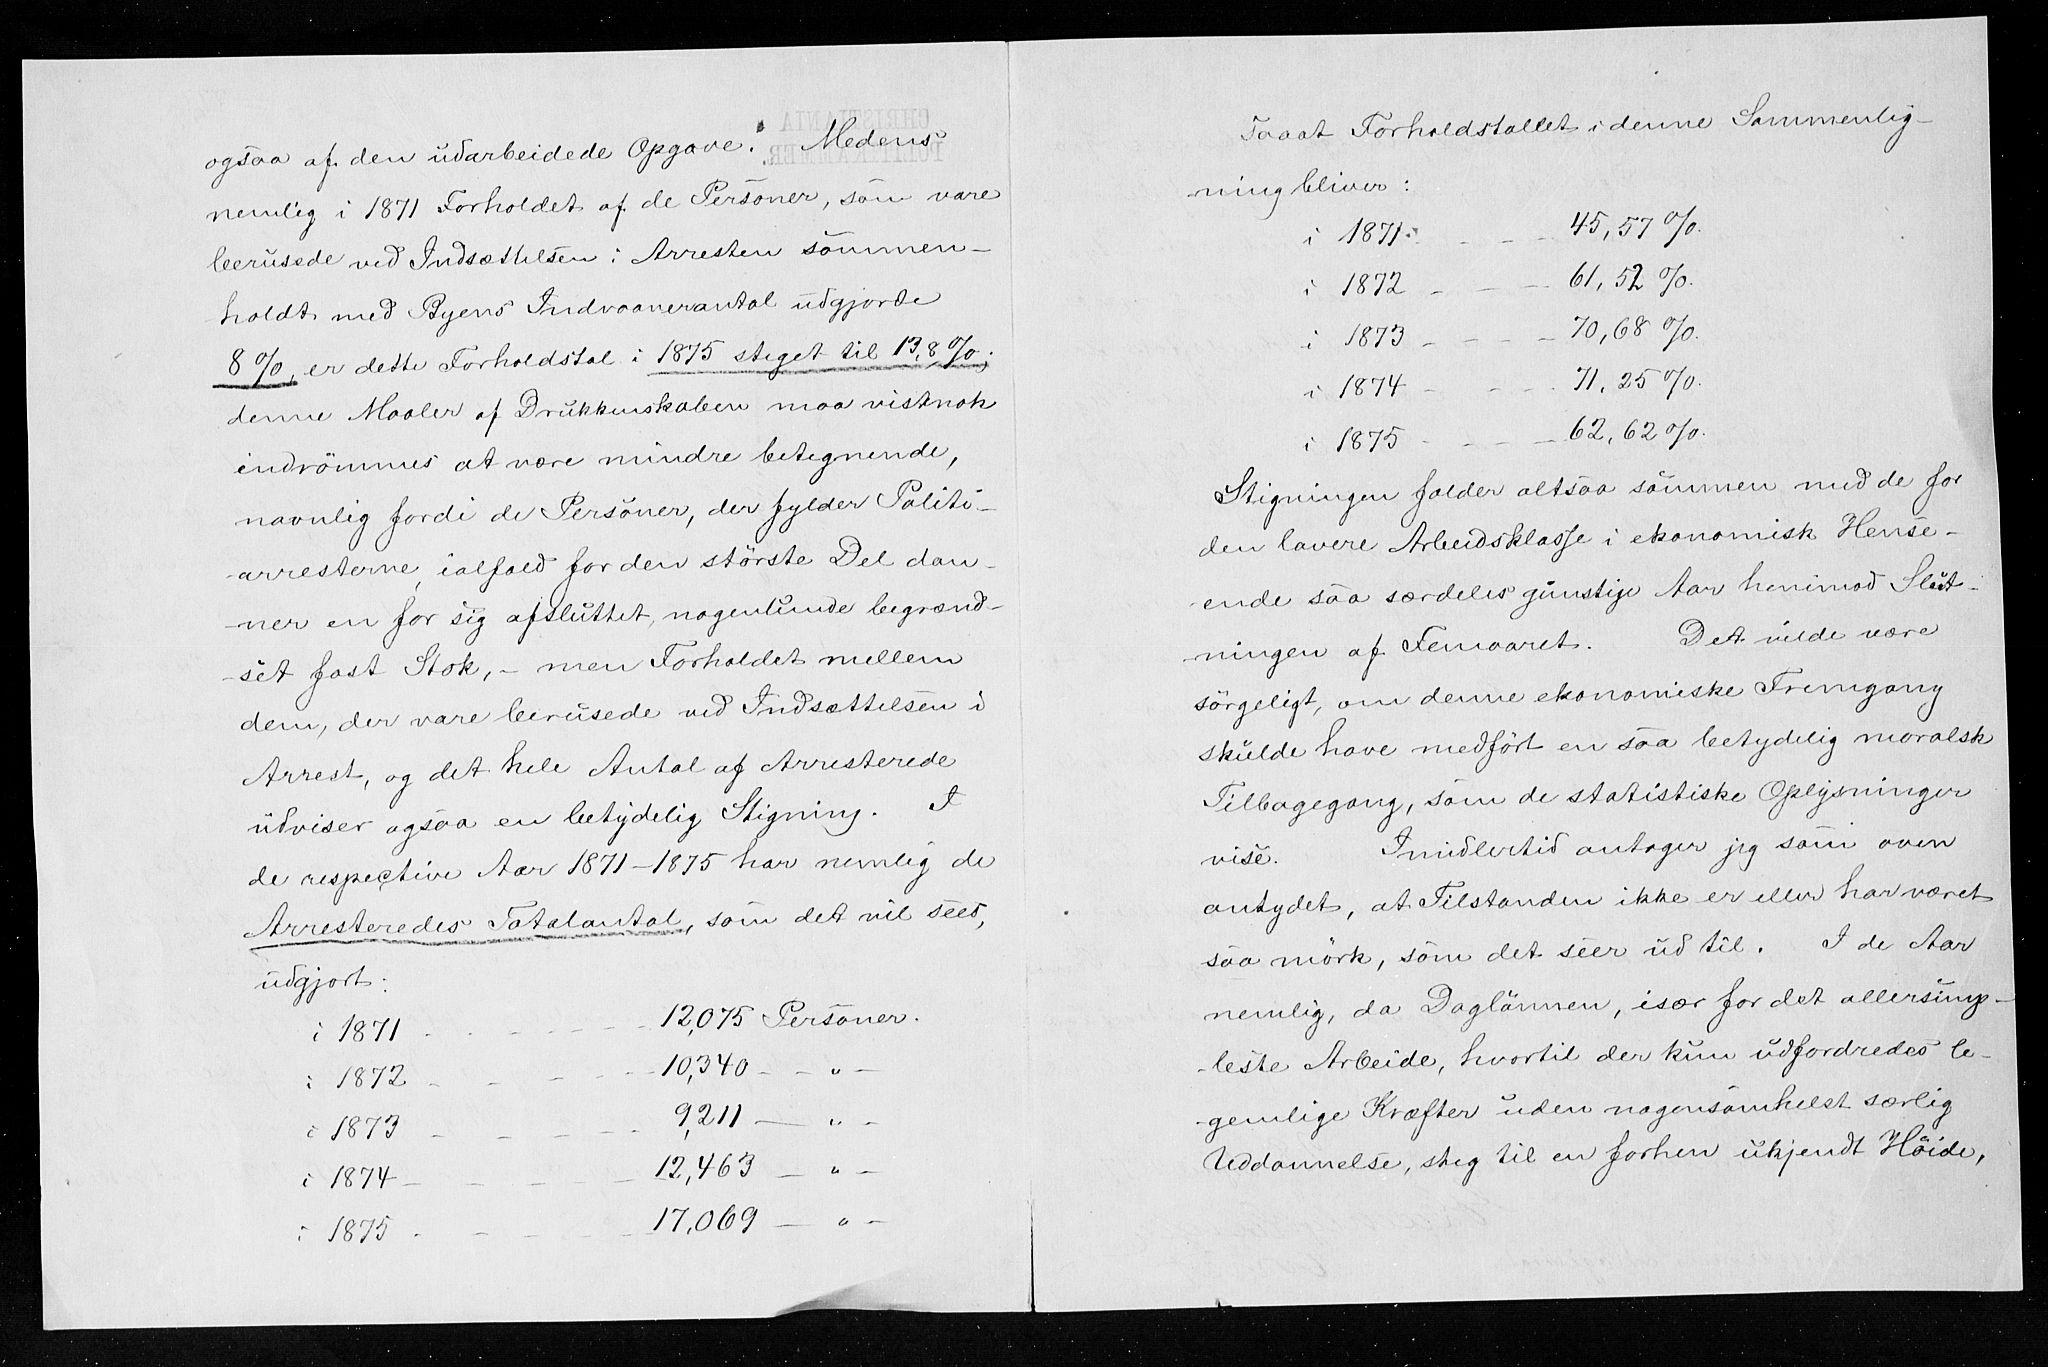 ogsaa af den udarbeidede Opgave. Medens
nemlig i 1871 Forholdet af de Personer, som vare
berusede ved Indsættelsen i Arresten sammen-
holdt med Byens Indvaanerantal udgjorde
8 %, er dette Forholdstal i 1875 steget til 13,8 %;
denne Maaler af Drukkenskaben maa vistnok
indrömmes at være mindre betegnende,
navnlig fordi de Personer, der fylder Politi-
-arresterne, ialfald for den störste Del dan-
-ner en for sig afsluttet, nogenlunde begrænd-
-set fast Stok, - men Forholdet mellem
dem, der vare berusede ved Indsættelsen i
Arrest, og det hele Antal af Arresterede
udviser ogsaa en betydelig Stigning. I
de respective Aar 1871-1875 har nemlig de
Arresteredes Totalantal, som det vil sees,
udgjort:
i 1871 - - - - - 12,075 Personer.
i 1872 - - - - - 10,340 - - " -
i 1873 - - - - - 9,211 - " -
i 1874 - - - - - 12,463 - " -
i 1875 - - - - - 17,069 - " -
saaat Forholdstallet i denne Sammenlig-
-ning bliver:
i 1871 - - - 45,57 %.
i 1872 - - - 61,52 %.
i 1873 - - - 70,68 %.
i 1874 - - - 71,25 %.
i 1875 - - - 62,62 %.
Stigningen falder altsaa sammen med de for
den lavere Arbeidsklasse i ekonomisk Hense-
-ende saa særdeles gunstige Aar henimod Slut-
-ningen af Femaaret. Det vilde være
sörgeligt, om denne ekonomiske Fremgang
skulde have medfört en saa betydelig moralsk
Tilbagegang, som de statistiske Oplysninger
vise. Imidlertid antager jeg som oven
antydet, at Tilstanden ikke er eller har været
saa mörk, som det seer ud til. I de Aar
nemlig, da Daglönnen, især for det allersimp-
-leste Arbeide, hvortil der kun udfordredes le-
-gemlige Kræfter uden nogensomhelst særlig
Uddannelse, steg til en forhen ukjendt Höide,